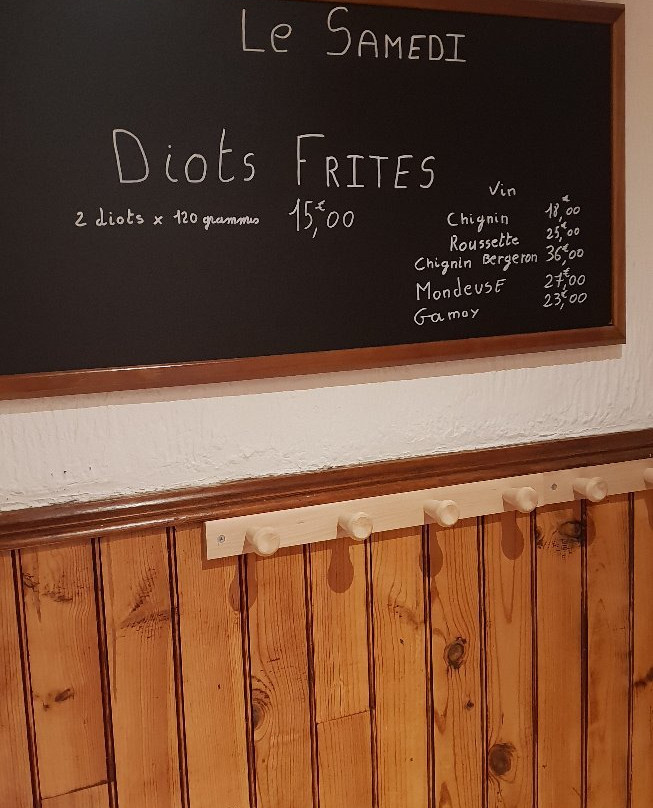 Le SAMEDI
Diots FRITES
2 diots x 120 grammes 15,€00
Vin
Chignin 18,€00
Roussette 25,€00
Chignin Bergeron 36,€00
MondeusE 27,€00
Gamay 23,€00